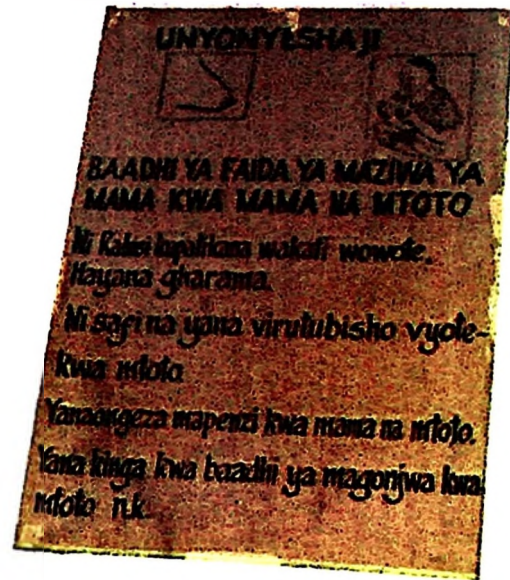 UNYONYESHAJI
BAADHI YA FAIDA YA MAZIWA YA
MAMA KWA MAMA NA MTOTO
Ni kupatikana wakati wowote.
Hayana gharama.
Ni safi na yana virutubisho vyote-
kwa mtoto.
Yanaongeza mapenzi kwa mama na mtoto.
Yana kinga kwa baadhi ya magonjwa kwa
mtoto n.k.